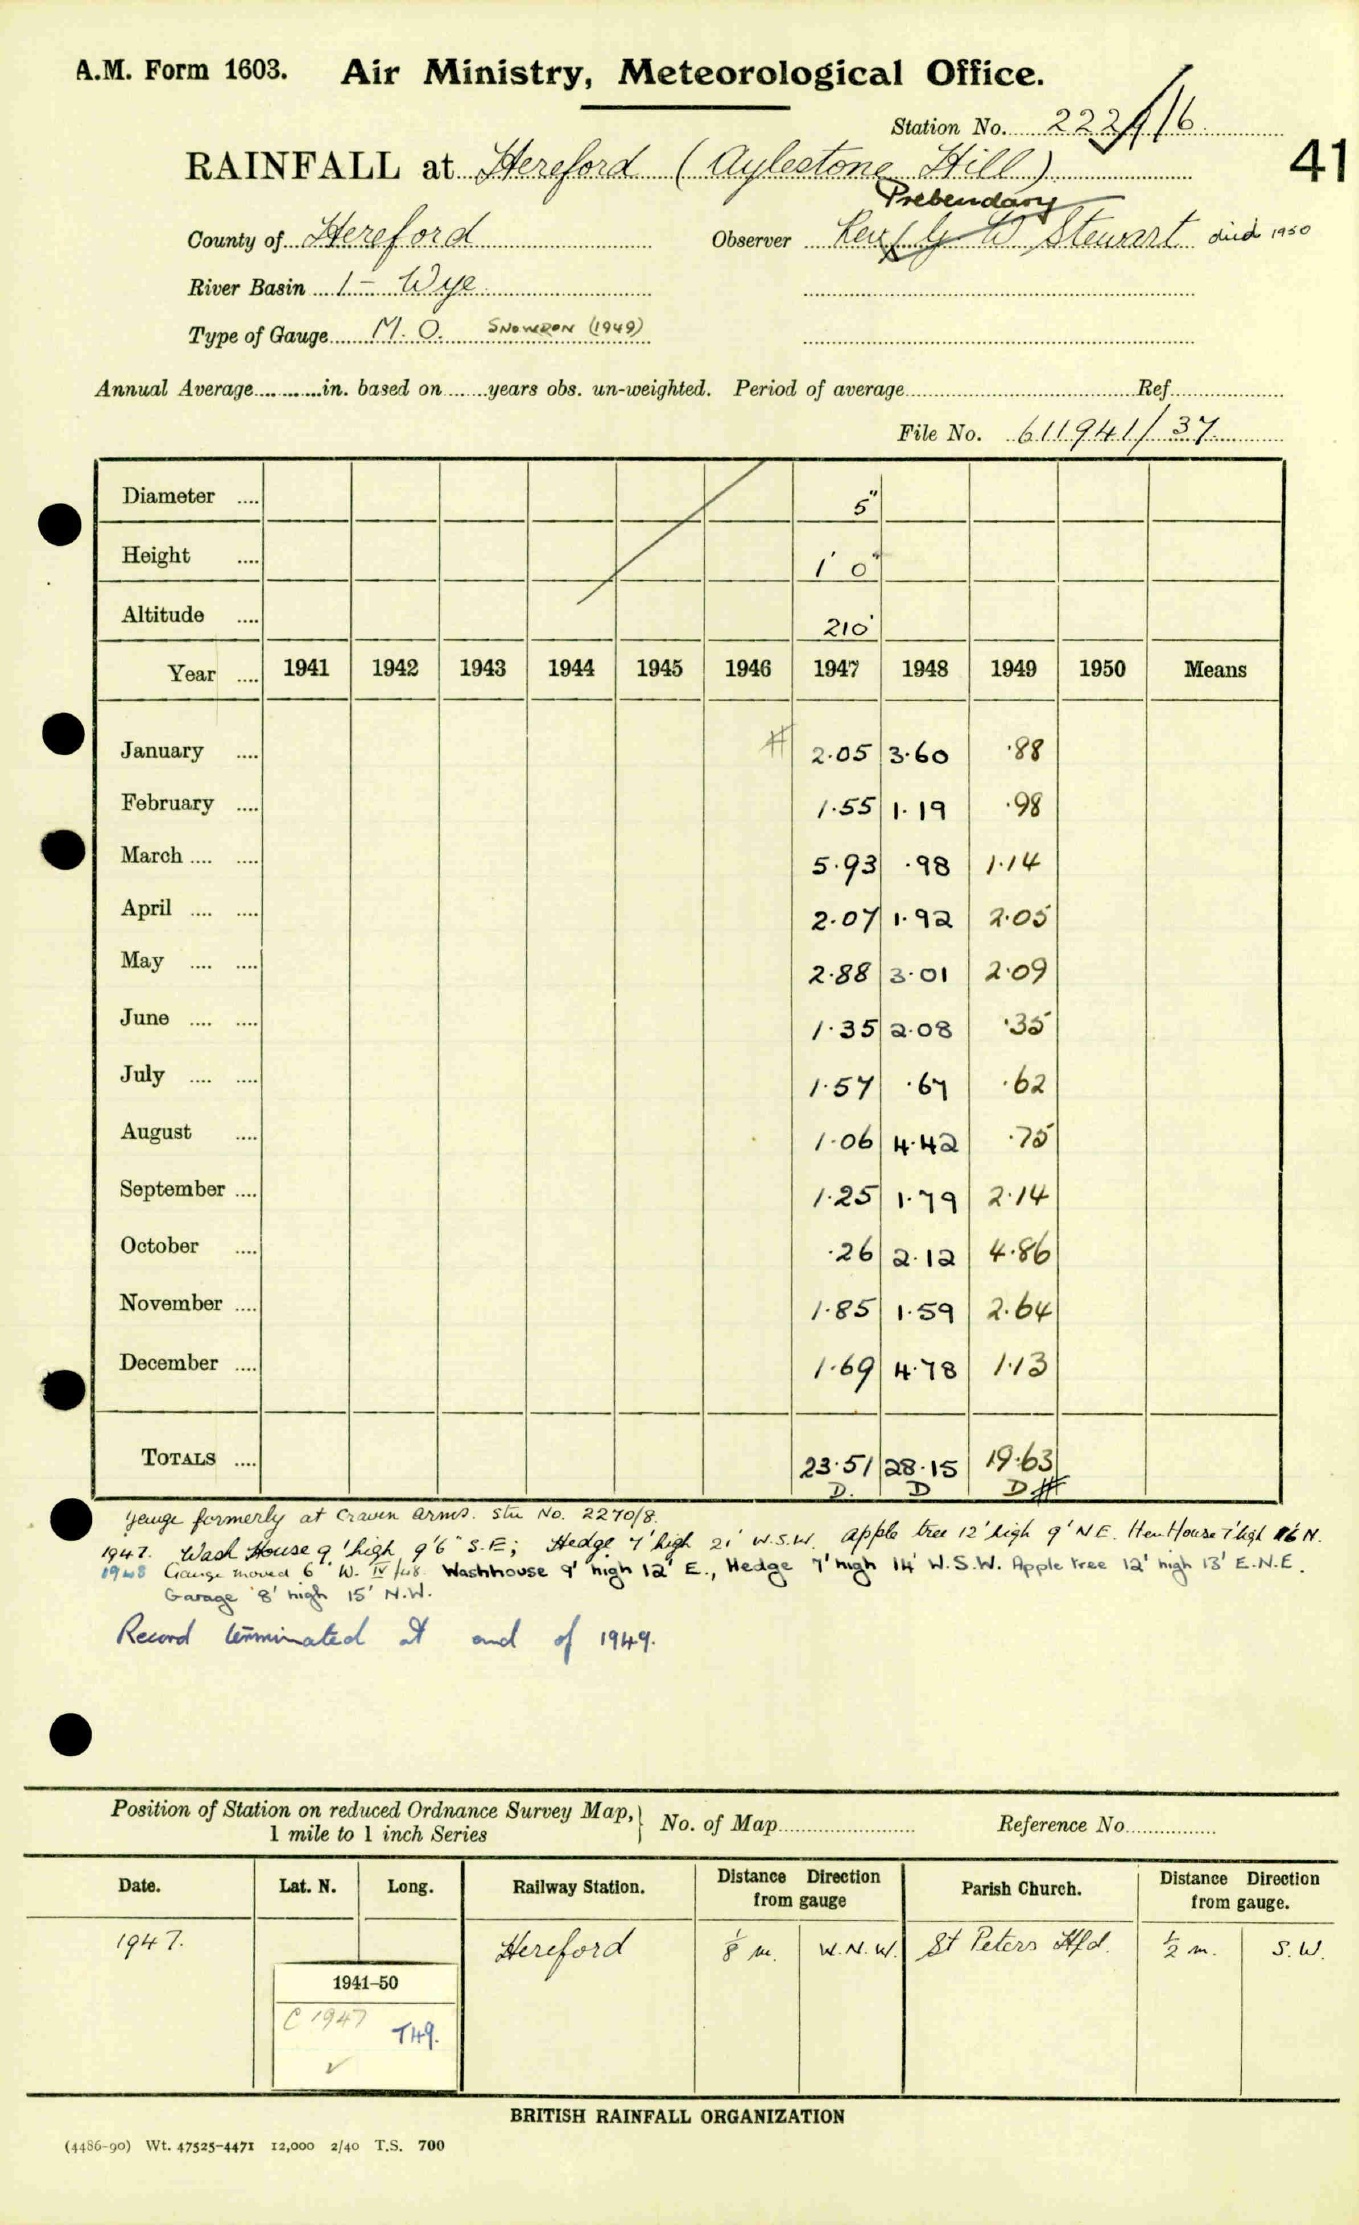 A.M. Form 1603. Air Ministry, Meteorological Office.
Station No. 2224/6
41
RAINFALL at Hereford (Aylestone Hill)
Prebendary
County of Hereford Observer Rev. G W Stewart died 1950
River Basin 1 - Wye
Type of Gauge M.O. SNOWDON (1949)
Annual Average in. based on years obs. un-weighted. Period of average Ref
File No. 611941/37
Diameter 5"
Height 1' 0"
Altitude 210'
Year 1941 1942 1943 1944 1945 1946 1947 1948 1949 1950 Means
January # 2.05 3.60 .88
February 1.55 1.19 .98
March 5.93 .98 1.14
April 2.07 1.92 2.05
May 2.88 3.01 2.09
June 1.35 2.08 .35
July 1.57 .67 .62
August 1.06 4.42 .75
September 1.25 1.79 2.14
October .26 2.12 4.86
November 1.85 1.59 2.64
December 1.69 4.78 1.13
TOTALS 23.51 28.15 19.63
D. D D #
Gauge formerly at Craven Arms. Stn No. 2270/8.
1947. Wash House 9' high 9'6" S.E; Hedge 7' high 21' W.S.W. Apple tree 12' high 9' N.E. Hen House 7' high 16' N.
1948 Gauge moved 6' W. IV/48. Washhouse 9' high 12' E., Hedge 7' high 14' W.S.W. Apple tree 12' high 13' E.N.E.
Garage 8' high 15' N.W.
Record terminated at end of 1949.
Position of Station on reduced Ordnance Survey Map, 1 mile to 1 inch Series } No. of Map Reference No.
Date. Lat. N. Long. Railway Station. Distance Direction from gauge Parish Church. Distance Direction from gauge.
1947. Hereford 1/8 m. W.N.W. St Peters Hfd. 1/2 m. S.W.
1941–50
C 1947 T49.
✓
BRITISH RAINFALL ORGANIZATION
(4486-90) Wt. 47525-4471 12,000 2/40 T.S. 700